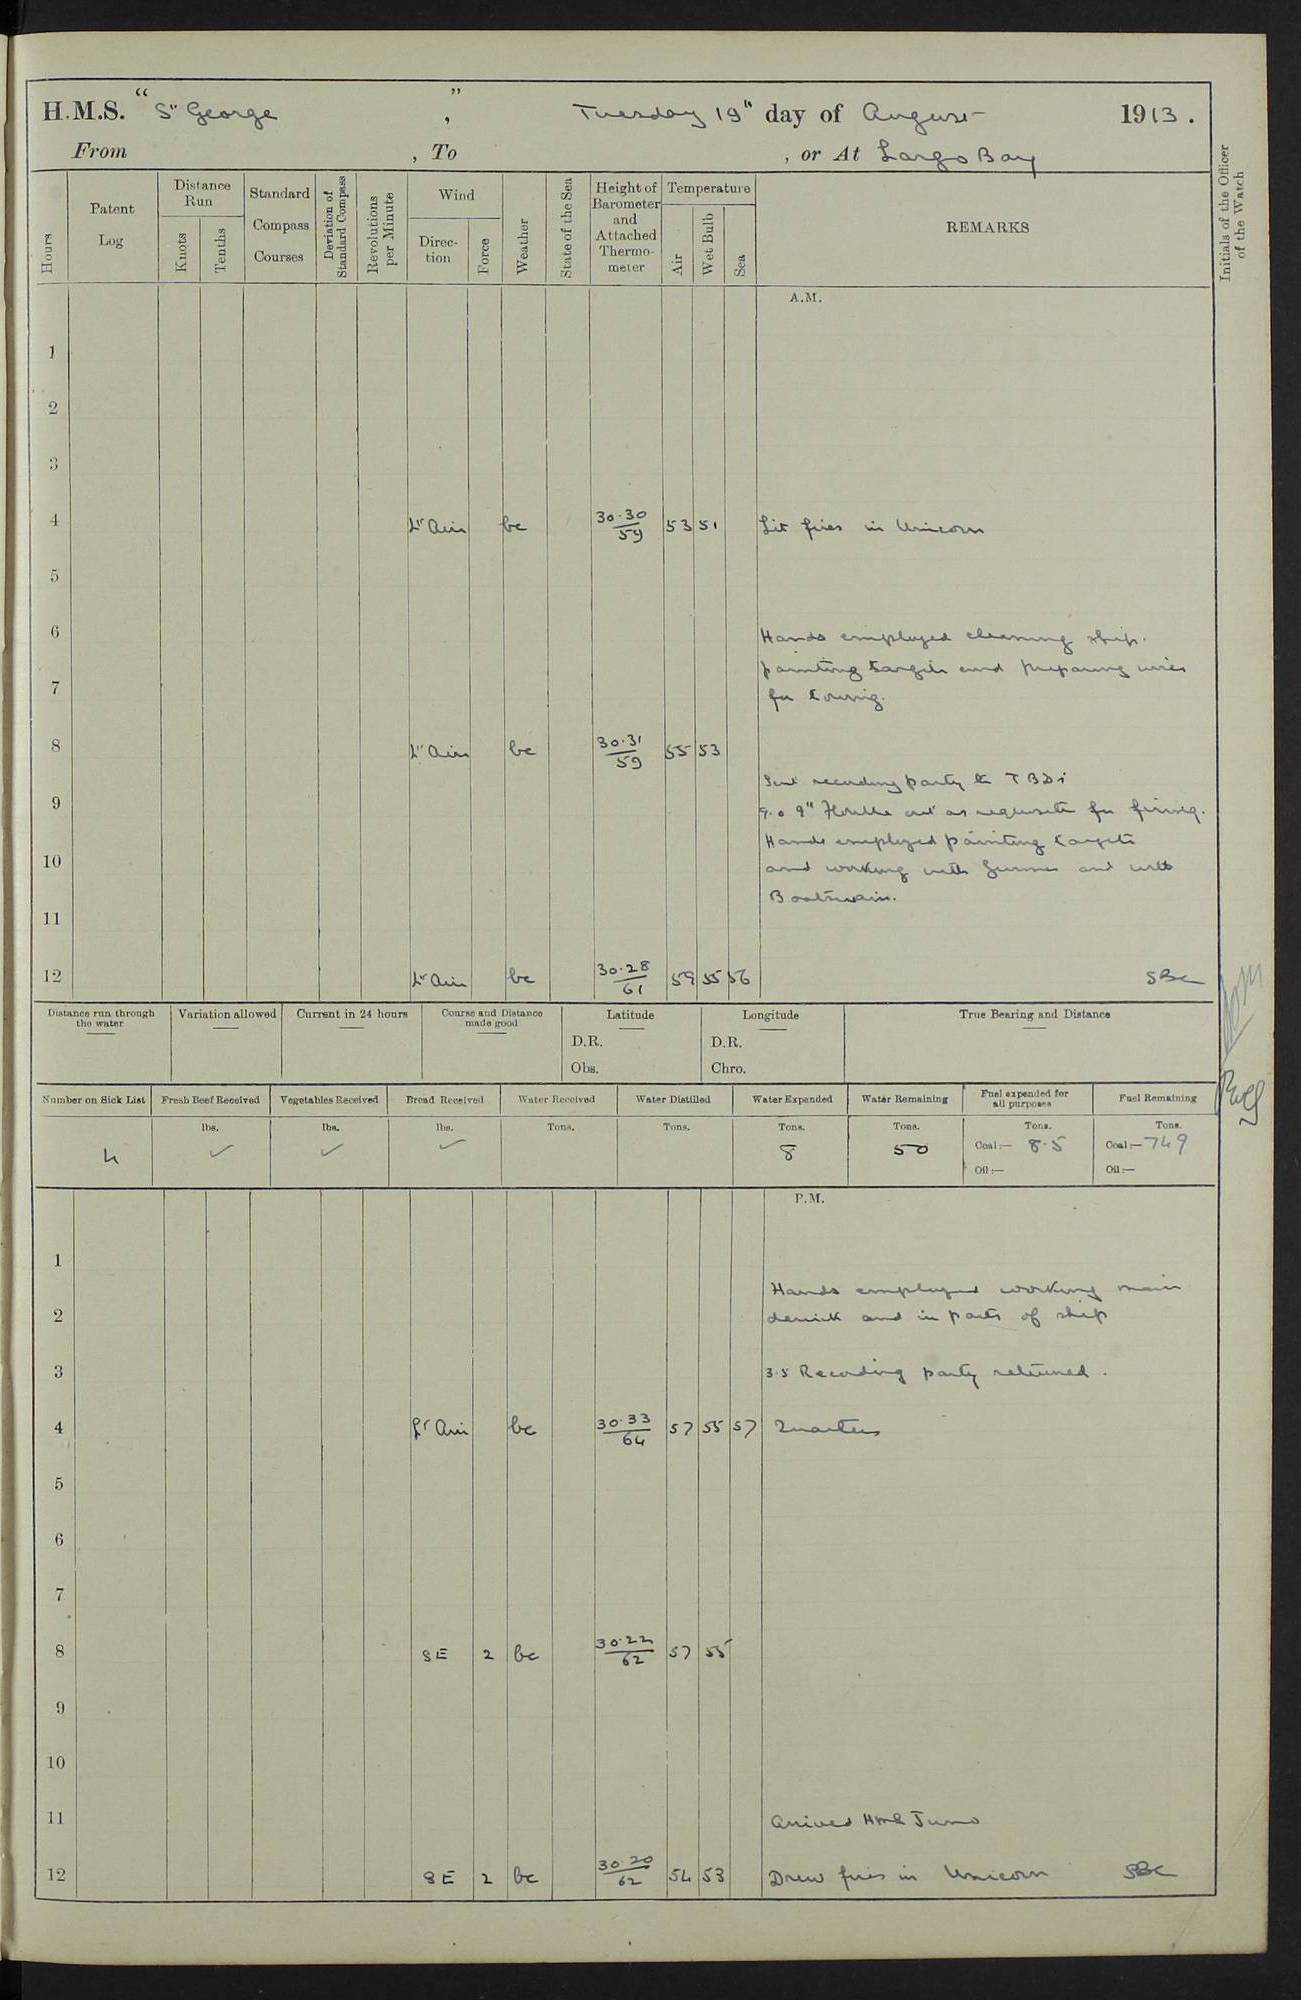 H.M.S. "St George", Tuesday 19th day of August 1913.
From , To , or At Largo Bay
Hours
Patent Log
Distance Run
Knots
Tenths
Standard Compass Courses
Deviation of Standard Compass
Revolutions per Minute
Wind
Direction
Force
Weather
State of the Sea
Height of Barometer and Attached Thermometer
Temperature
Air
Wet Bulb
Sea
REMARKS
Initials of the Officer of the Watch
A.M.
1
2
3
4 Lt Air bc 30.30 59 53 51 Lit fires in Unicorn
5
6 Hands employed cleaning ship.
painting targets and preparing wires
7 for towing.
8 Lt Air bc 30.31 59 55 53
Sent recording party to TBDs
9 9.0 out as requisite for firing.
Hands employed painting targets
10 and working with Gunner and with
Boatswain.
11
12 Lt Air bc 30.28 61 59 55 56 SBC
Distance run through the water
Variation allowed
Current in 24 hours
Course and Distance made good
Latitude
D.R.
Obs.
Longitude
D.R.
Chro.
True Bearing and Distance
Number on Sick List
Fresh Beef Received
Vegetables Received
Bread Received
Water Received
Water Distilled
Water Expended
Water Remaining
Fuel expended for all purposes
Fuel Remaining
lbs. lbs. lbs. Tons. Tons. Tons. Tons. Tons. Tons.
4 ✓ ✓ ✓ 8 50 Coal:— 8.5 Coal:— 749
Oil:— Oil:—
P.M.
1
Hands employed working main
2 derrick and in parts of ship
3 3.5 Recording party returned.
4 Lt Air bc 30.33 64 57 55 57 Quarters
5
6
7
8 SE 2 bc 30.22 62 57 55
9
10
11 Arrived HMS Juno
12 SE 2 bc 30.20 62 54 53 Drew fires in Unicorn SBC